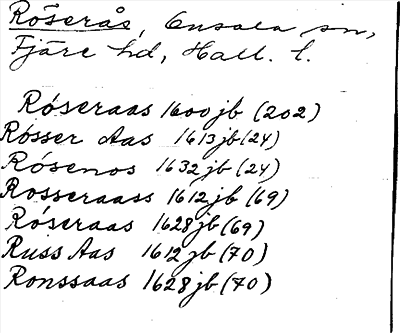 Röserås, Onsala sn,
Fjäre hd, Hall. l.
Róseraas 1600 jb (202)
Rósser Aas 1613 jb (24)
Rósenos 1632 jb (24)
Rosseraass 1612 jb (69)
Róseraas 1628 jb (69)
Russ Aas 1612 jb (70)
Ronssaas 1628 jb (70)